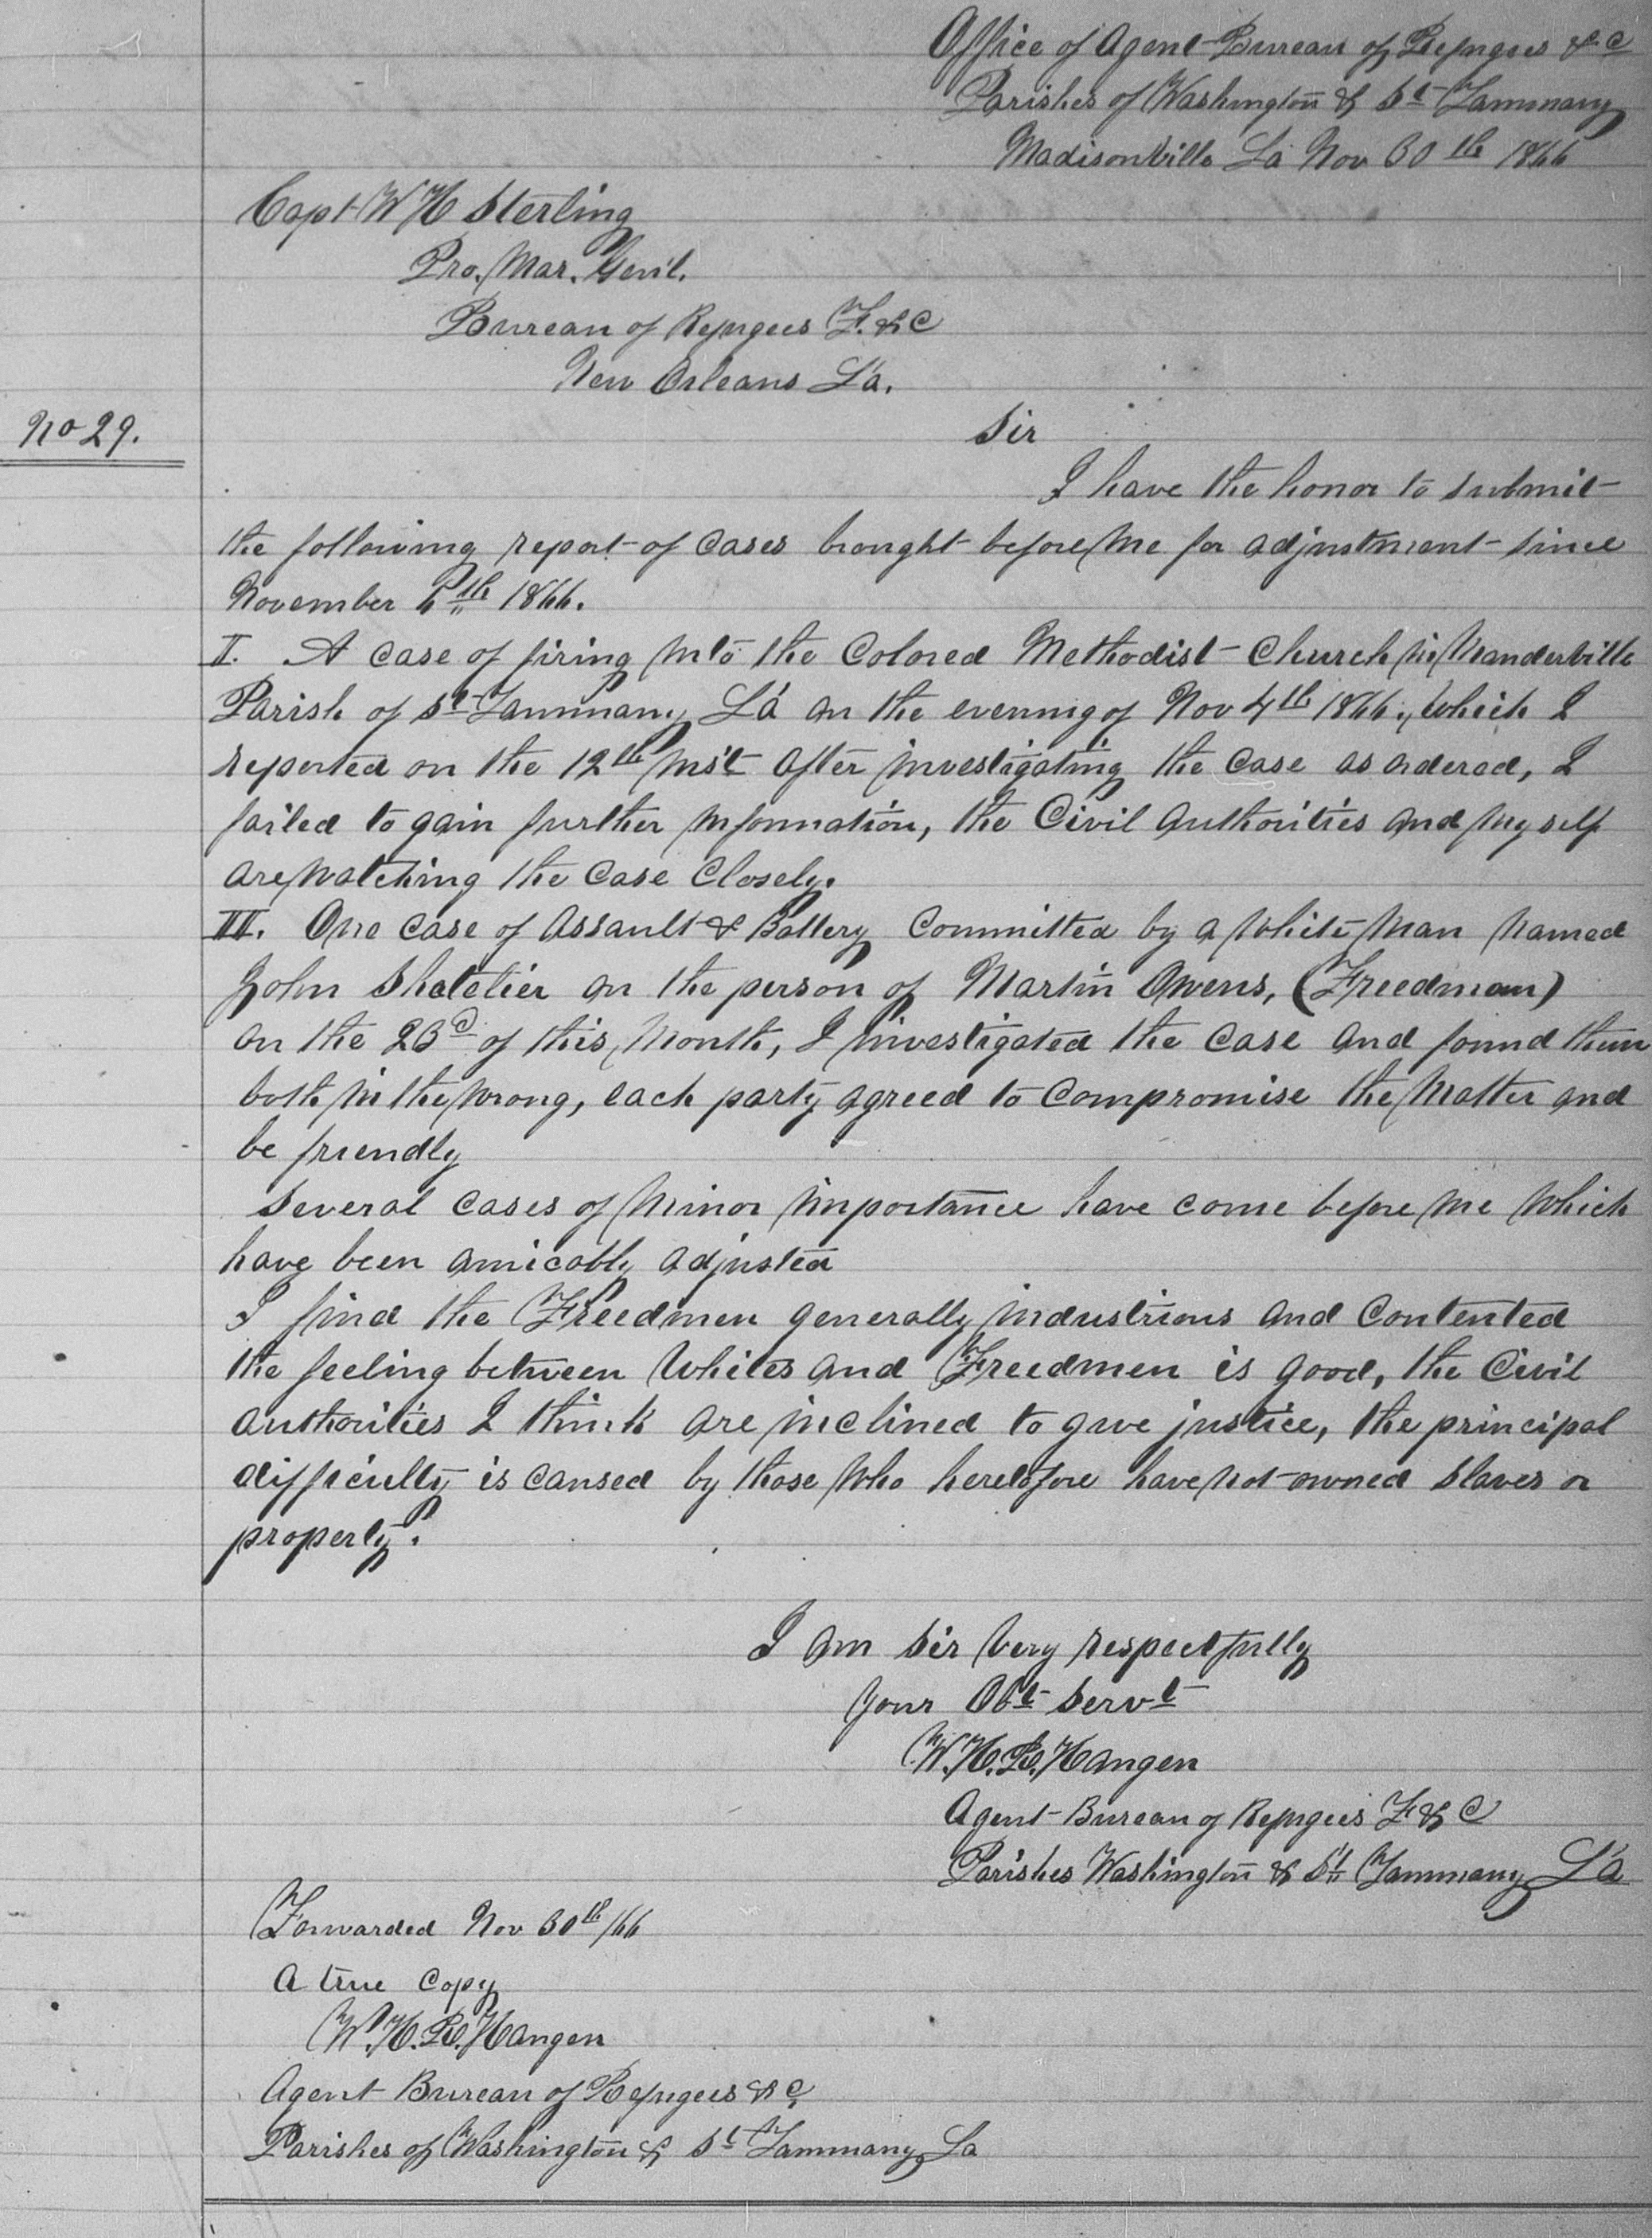 Office of Agent Bureau of Refugees &c
Parishes of Washington & St Tammany
Madisonville La Nov 30th 1866
Capt W H Sterling
Pro. Mar. Genl.
Bureau of Refugees F. & C
New Orleans La.
No 29.
Sir
I have the honor to submit
the following report of cases brought before me for adjustment since
November 6th 1866.
I. A case of firing into the Colored Methodist Church in Manderville
Parish of St Tammany La on the evening of Nov 4th 1866., which I
reported on the 12th inst after investigating the case as ordered, I
failed to gain further information, the Civil authorities and myself
are watching the case closely.
III. One case of Assault & Battery committed by a white man named
John Shatelier on the person of Martin Owens, (Freedman)
on the 23d of this month, I investigated the case and found them
both in the wrong, each party agreed to compromise the matter and
be friendly
Several cases of minor importance have come before me which
have been amicably adjusted
I find the Freedmen generally industrious and contented
the feeling between Whites and Freedmen is good, the Civil
authorities I think are inclined to give justice, the principal
difficulty is caused by those who heretofore have not owned slaves or
property.
I am Sir very respectfully
your Obt Servt
W. H. R. Hangen
Agent Bureau of Refugees F & C
Parishes Washington & St Tammany La
Forwarded Nov 30th/66
A true copy
W. H. R. Hangen
Agent Bureau of Refugees &c
Parishes of Washington & St Tammany La